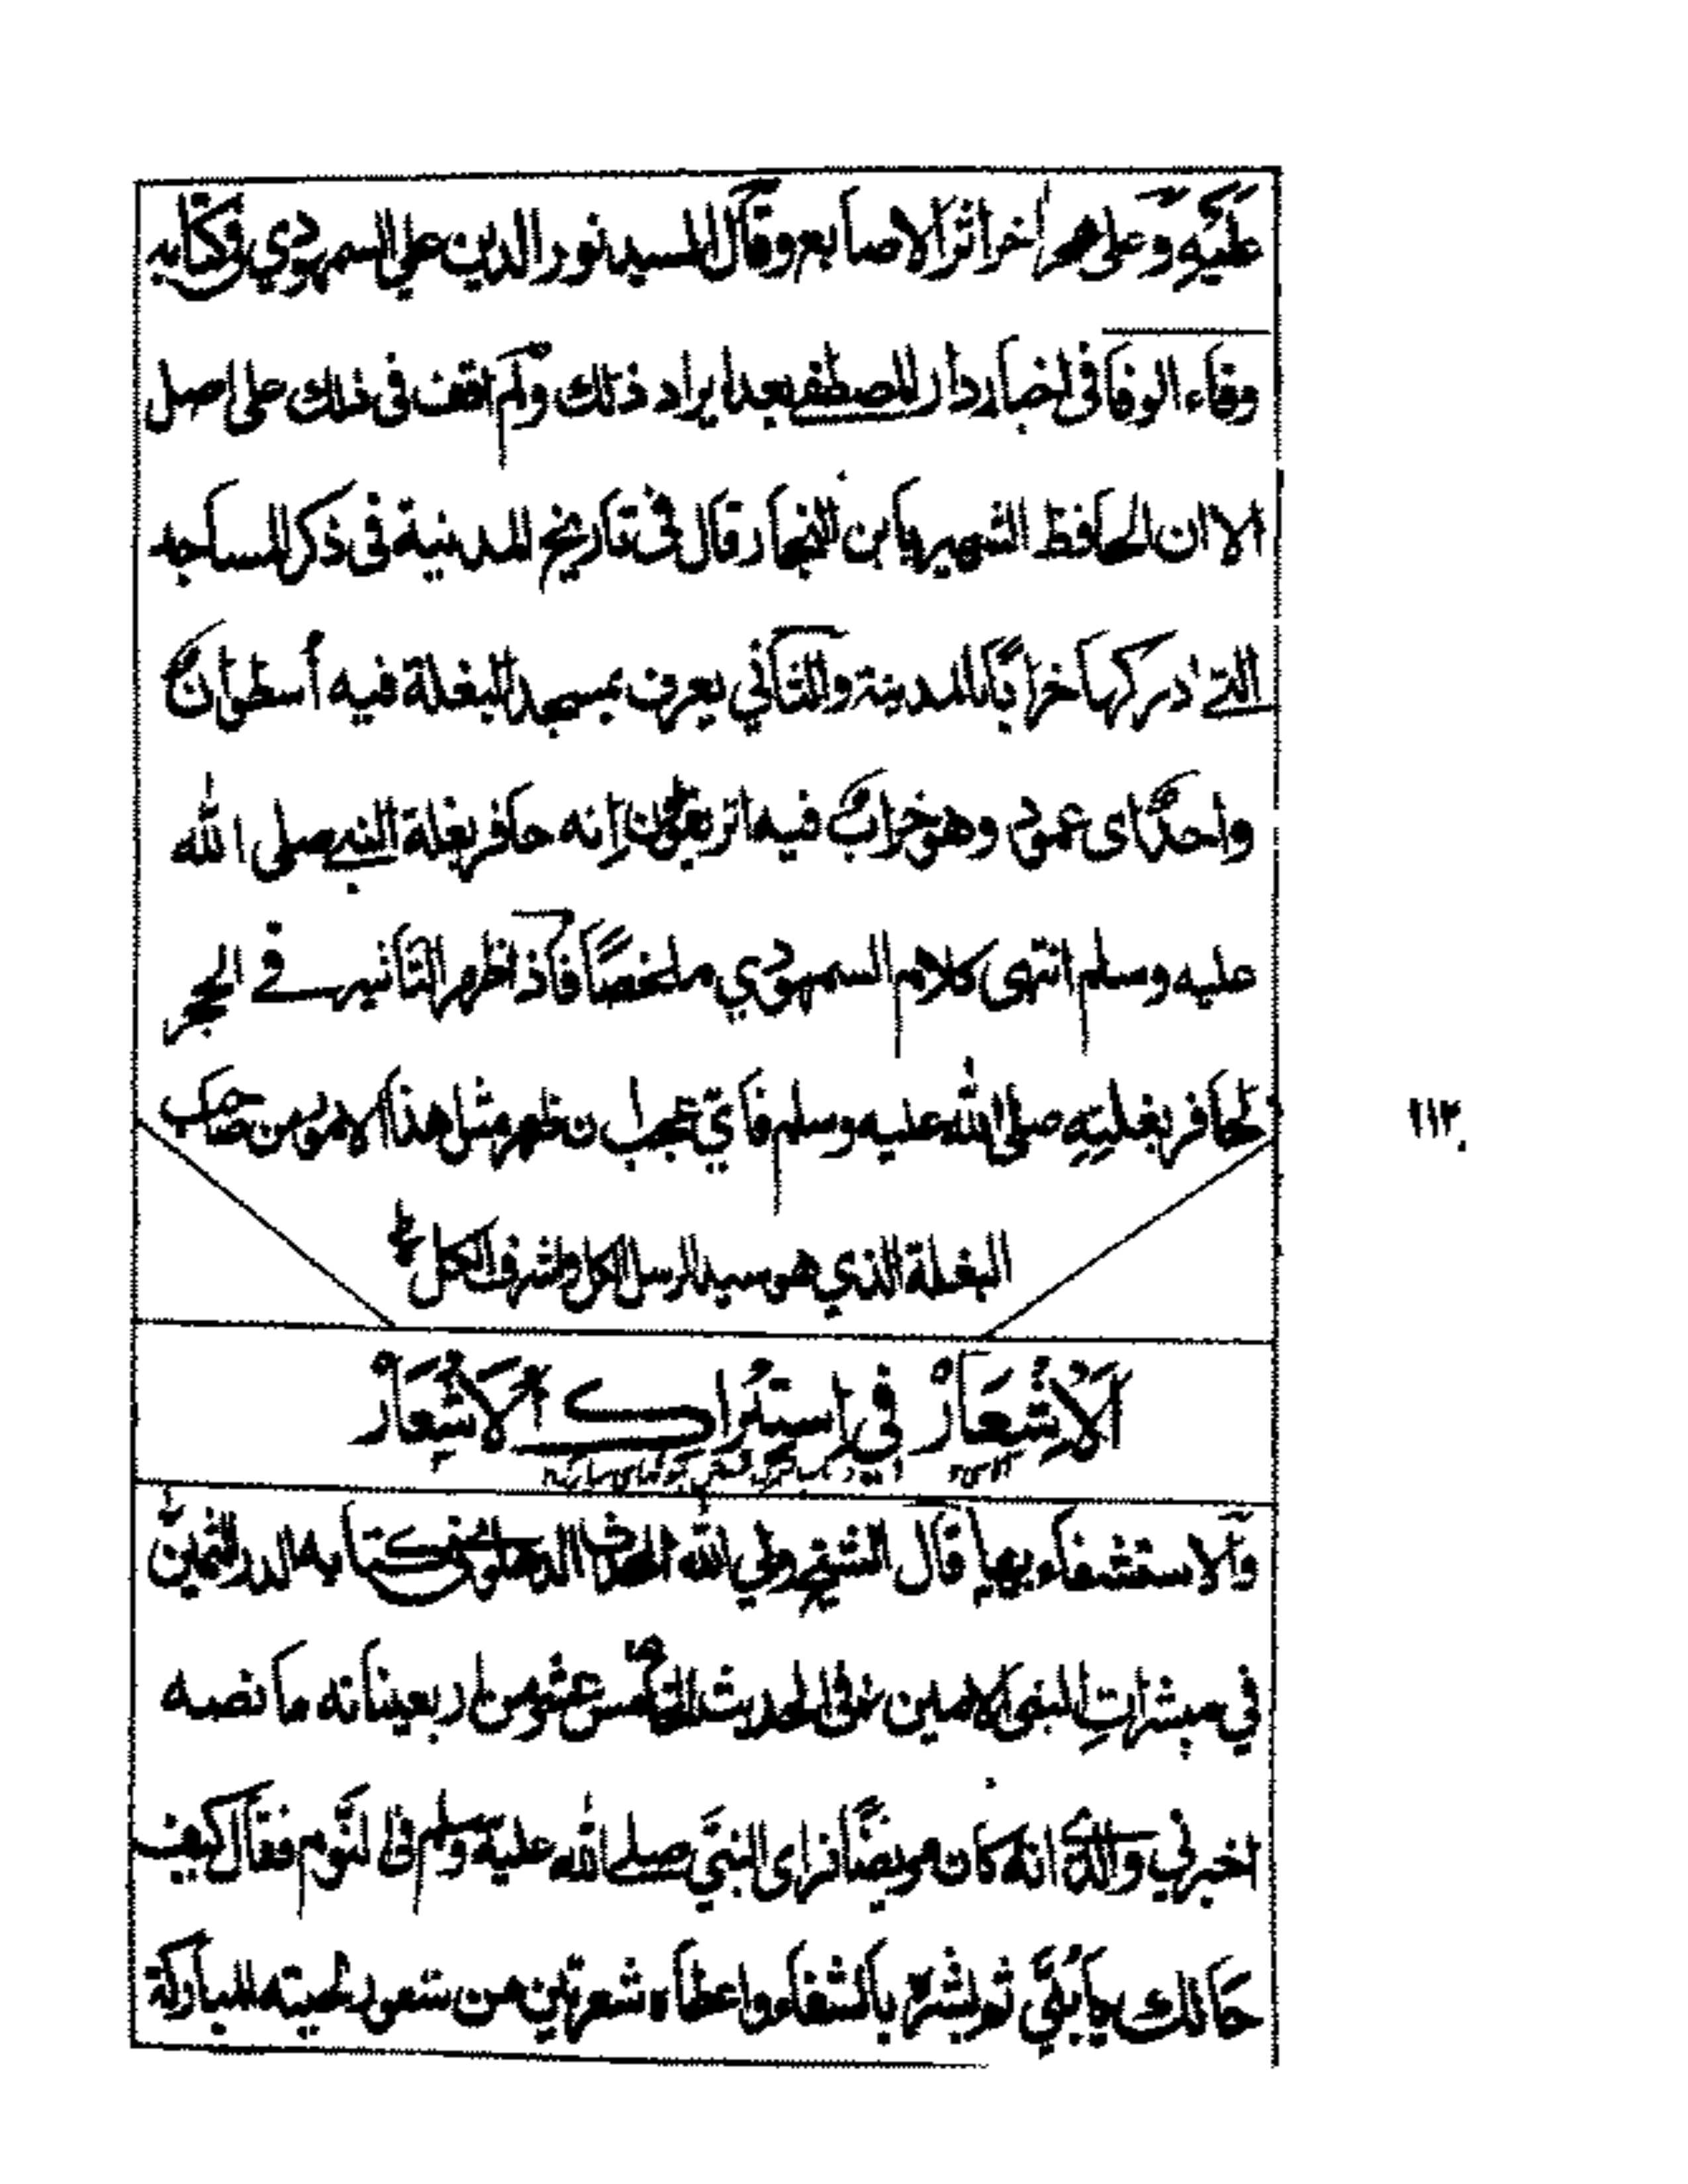 عليه وعلى حجر اخر اثر الاصابع وقال السيد نور الدين علي السمهودي في كتابه
وفاء الوفا في اخبار دار المصطفى بعد ايراد ذلك ولم اقف في ذلك على اصل
الا ان الحافظ الشهير بابن النجار قال في تاريخ المدينة في ذكر المساجد
التي ادركها خرابًا بالمدينة والثاني يعرف بمسجد البغلة فيه أسطوانٌ
واحدٌ اى عمود وهو خرابٌ فيه اثر يقولون إنه حافر بغلة النبي صلى الله
عليه وسلم انتهى كلام السمهودي ملخصًا فاذا ظهر التأثير في الحجر
لحافر بغليه صلى الله عليه وسلم فأي عجب ان ظهر مثل هذا الامر من صاحب
١١٢
البغلة الذي هو سيد الرسل الكل واشرف الكل
اَلْإِشْعَارْ في استدراك الْاَشْعَارْ
والاستشفاء بها قال الشيخ ولي الله الدهلوي في كتابه الدر الثمين
في مبشراتِ النبي الامين في الحديث الخامس عشر من اربعيناته ما نصه
اخبرني والدي انه كان مريضًا فراى النبيَّ صلى الله عليه وسلم فى النوم فقال كيف
حالك يا بُنَيَّ ثم بشره بالشفاء واعطاه شعرتين من شعور لحيته المباركة